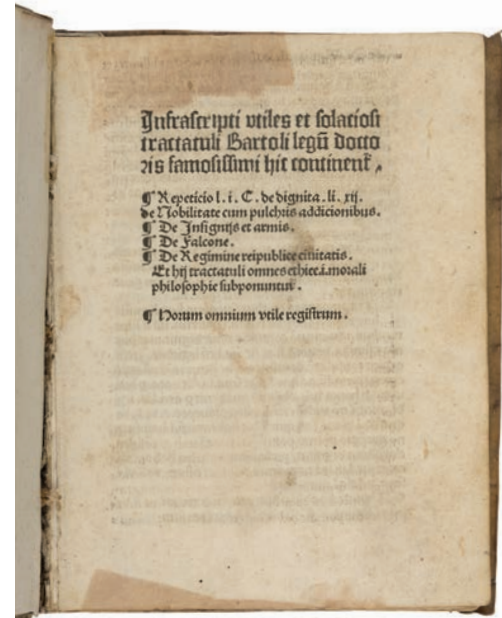 Infrascripti vtiles et solatiosi
tractatuli Bartoli legū docto
ris famosissimi hic continent᷑
¶ Repeticio l. i. C. de dignita. li. xij.
de Nobilitate cum pulchris addicionibus.
¶ De Insignijs et armis.
¶ De Falcone.
¶ De Regimine reipublice ciuitatis.
Et hij tractatuli omnes ethice.i.morali
philosophie subponuntur.
¶ Horum omnium vtile registrum.